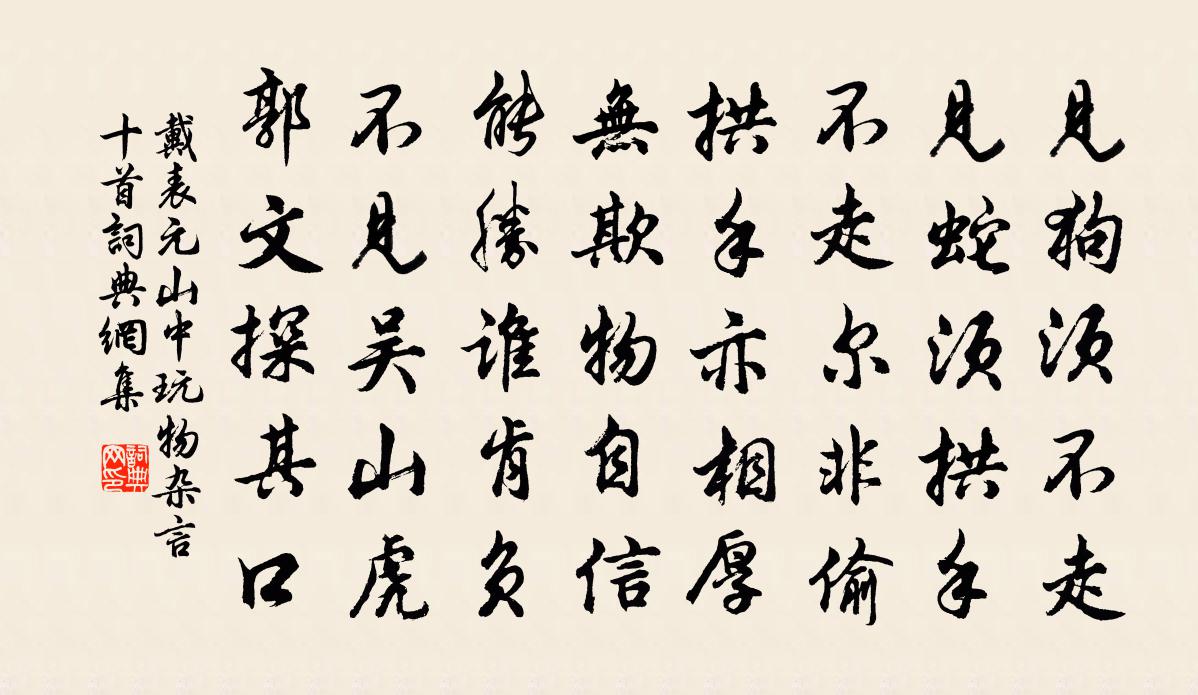 見狗须不走
見蛇须拱手
不走尔非偷
拱手亦相厚
無欺物自信
能勝谁肯负
不見吴山虎
郭文探其口
戴表元山中玩物杂言
十首詞典網集
詞典
网印